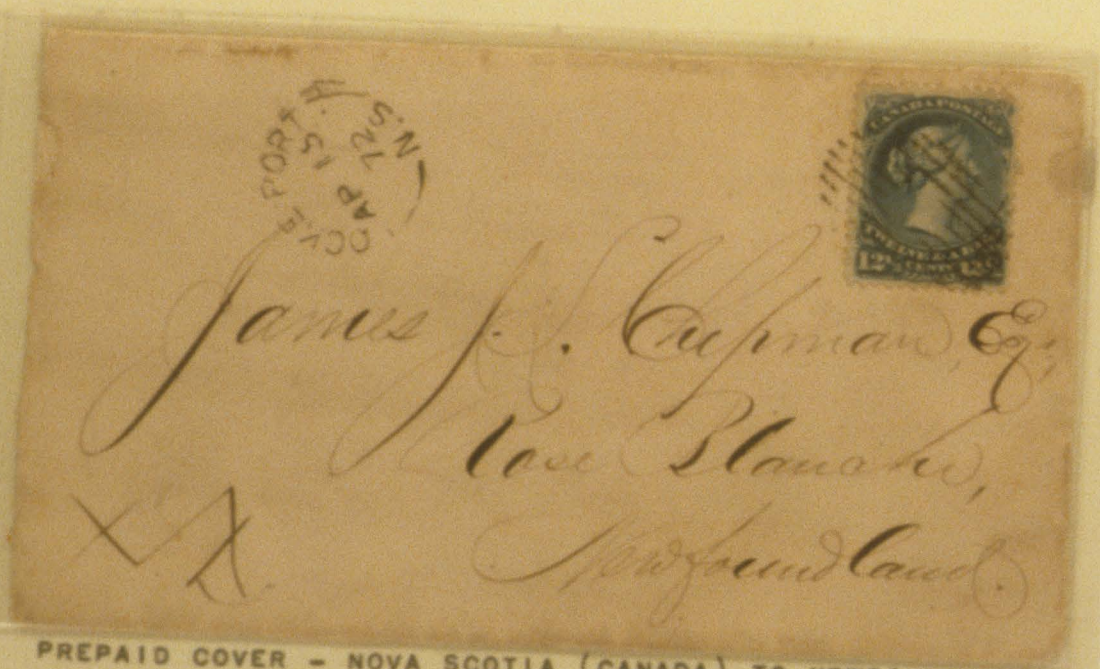 PORT
AP 15
72
N.S.
CANADA POSTAGE
12½ CENTS
James J. S. Chipman, Esq.,
Rose Blanche,
Newfoundland.
PREPAID COVER - NOVA SCOTIA (CANADA) TO